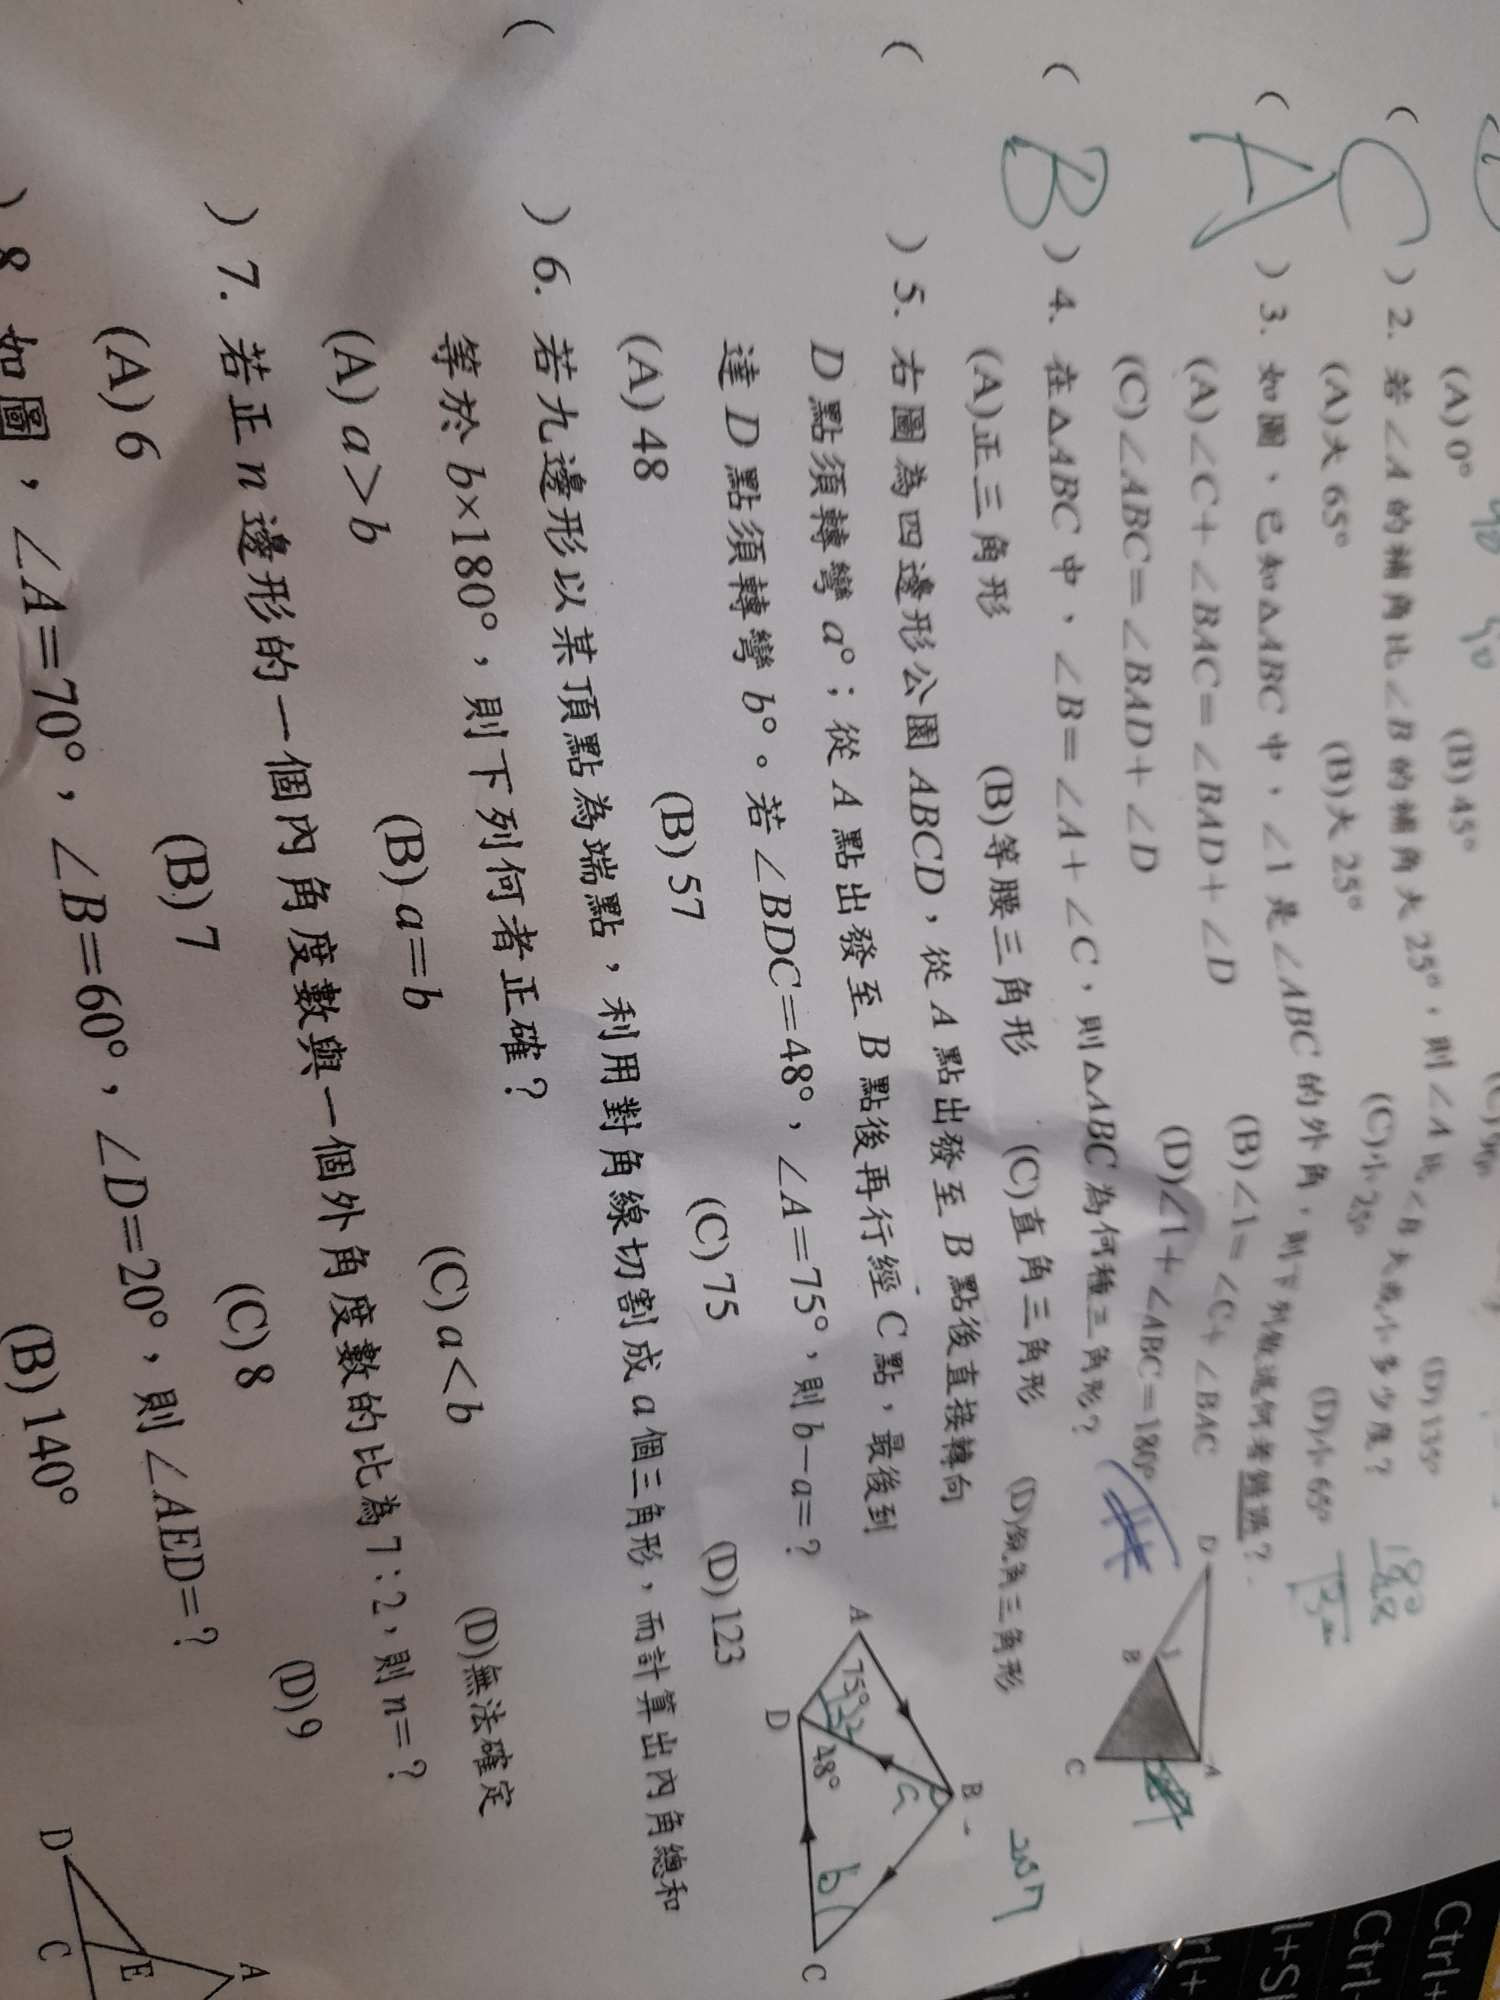 (A) 0° (B) 45° (D) 135°
C ) 2. 若∠A的補角比∠B的補角大25°,則∠A比∠B大或小多少度?
(A)大65° (B)大25° (C)小25° (D)小65°
( A ) 3. 如圖,已知△ABC中,∠1是∠ABC的外角,則下列敘述何者錯誤?
(A)∠C+∠BAC=∠BAD+∠D (B)∠1=∠C+∠BAC
(C)∠ABC=∠BAD+∠D (D)∠1+∠ABC=180°
D 1 B C A
( B ) 4. 在△ABC中,∠B=∠A+∠C,則△ABC為何種三角形?
(A)正三角形 (B)等腰三角形 (C)直角三角形 (D)鈍角三角形
( ) 5. 右圖為四邊形公園ABCD,從A點出發至B點後直接轉向
D點須轉彎a°;從A點出發至B點後再行經C點,最後到
達D點須轉彎b°。若∠BDC=48°,∠A=75°,則b-a=?
(A) 48 (B) 57 (C) 75 (D) 123
A 75° D 48° a B b C
( ) 6. 若九邊形以某頂點為端點,利用對角線切割成a個三角形,而計算出內角總和
等於b×180°,則下列何者正確?
(A) a>b (B) a=b (C) a<b (D)無法確定
) 7. 若正n邊形的一個內角度數與一個外角度數的比為7:2,則n=?
(A) 6 (B) 7 (C) 8 (D) 9
) 8. 如圖,∠A=70°,∠B=60°,∠D=20°,則∠AED=?
(B) 140°
D C E A
Ctrl+
Ctrl-